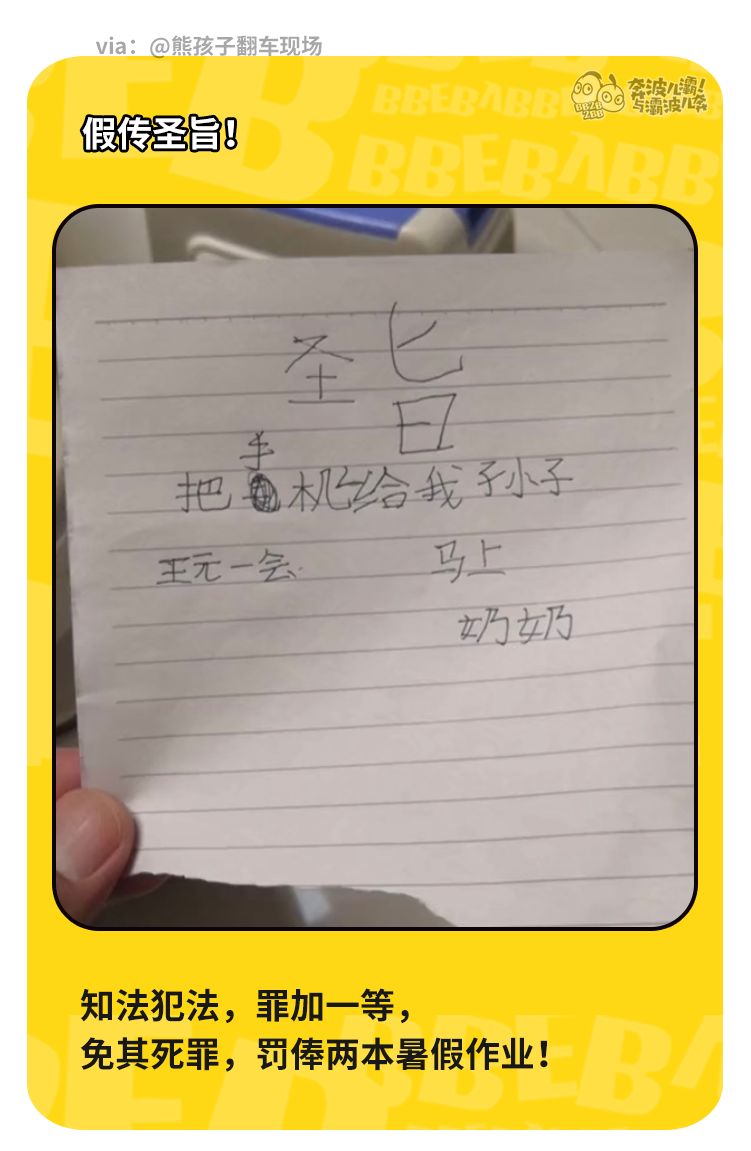 via：@熊孩子翻车现场
奔波儿灞！
与灞波儿奔
BBZB
ZBB
BBEBABB
BBEBABB
假传圣旨！
圣旨
把手机给我孙小子
王元一会 马上
奶奶
知法犯法，罪加一等，
免其死罪，罚俸两本暑假作业！